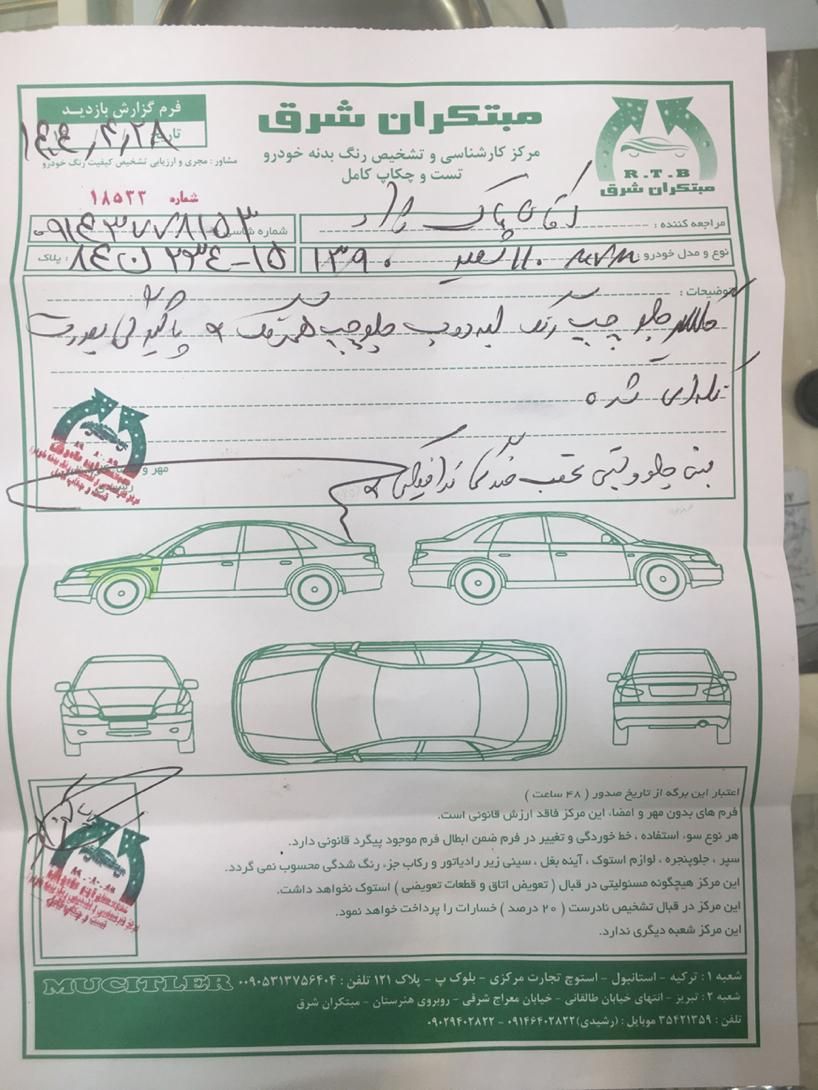 فرم گزارش بازدید
تاریخ ۱۴۰۴٫۴٫۲۸
مبتکران شرق
مشاور : مجری و ارزیابی تشخیص کیفیت رنگ خودرو
مرکز کارشناسی و تشخیص رنگ بدنه خودرو
تست و چکاپ کامل
R.T.B
مبتکران شرق
شماره ۱۸۵۳۳
مراجعه کننده : آقای پاک
شماره شاسی ۰۹۱۴۳۷۷۸۱۵۳
نوع و مدل خودرو : MVM ۱۱۰ سفید ۱۳۹۰
پلاک : ۱۵-۲۳۴ ن ۸۴
توضیحات :
گلگیر جلو چپ رنگ لبه درب جلو چپ
شده
جلو عقب
مهر و
اعتبار این برگه از تاریخ صدور ( ۴۸ ساعت )
فرم های بدون مهر و امضاء این مرکز فاقد ارزش قانونی است.
هر نوع سوء استفاده ، خط خوردگی و تغییر در فرم ضمن ابطال فرم موجود پیگرد قانونی دارد.
سپر ، جلوپنجره ، لوازم استوک ، آینه بغل ، سینی زیر رادیاتور و رکاب جزء رنگ شدگی محسوب نمی گردد.
این مرکز هیچگونه مسئولیتی در قبال ( تعویض اتاق و قطعات تعویضی ) استوک نخواهد داشت.
این مرکز در قبال تشخیص نادرست ( ۲۰ درصد ) خسارات را پرداخت خواهد نمود.
این مرکز شعبه دیگری ندارد.
شعبه ۱ : ترکیه - استانبول - استوچ تجارت مرکزی - بلوک پ - پلاک ۱۲۱ تلفن : ۰۰۹۰۵۳۱۳۷۵۶۴۰۴
MUCITLER
شعبه ۲ : تبریز - انتهای خیابان طالقانی - خیابان معراج شرقی - روبروی هنرستان - مبتکران شرق
تلفن : ۳۵۴۲۱۳۵۹ موبایل : (رشیدی) ۰۹۱۴۶۴۰۲۸۲۲ - ۰۹۰۲۹۴۰۲۸۲۲